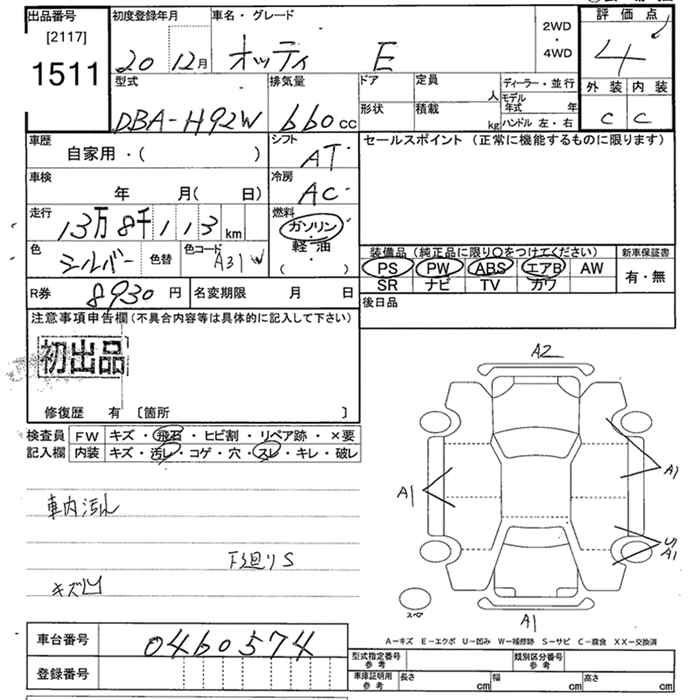 出品番号
[2117]
1511
初度登録年月
20 12月
車名・グレード
オッティ E
2WD
・
4WD
評価点
4
外装 内装
C C
型式
DBA-H92W
排気量
660 cc
ドア
形状
定員 人
積載 kg
ディーラー・並行
モデル年式 年
ハンドル 左・右
車歴
自家用・( )
シフト
AT
セールスポイント (正常に機能するものに限ります)
車検
年 月( 日)
冷房
AC
走行
13万8千113 km
燃料
ガソリン
・
軽・油
( )
色
シルバー
色替
色コード
A31W
装備品 (純正品に限り○をつけてください)
PS PW ABS エアB AW
SR ナビ TV カワ
新車保証書
有・無
R券
8930 円
名変期限 月 日
後日品
注意事項申告欄 (不具合内容等は具体的に記入して下さい)
初出品
修復歴 有 [箇所 ]
検査員記入欄
FW キズ・飛石・ヒビ割・リペア跡・×要
内装 キズ・汚レ・コゲ・穴・スレ・キレ・破レ
車内汚れ
下廻りS
キズ凹
A2
A1
A1
U1
A1
A1
スペア
A-キズ E-エクボ U-凹み W-補修跡 S-サビ C-腐食 XX-交換済
車台番号
0460574
登録番号
型式指定番号
参考
類別区分番号
参考
車庫証明用
参考
長さ cm
幅 cm
高さ cm